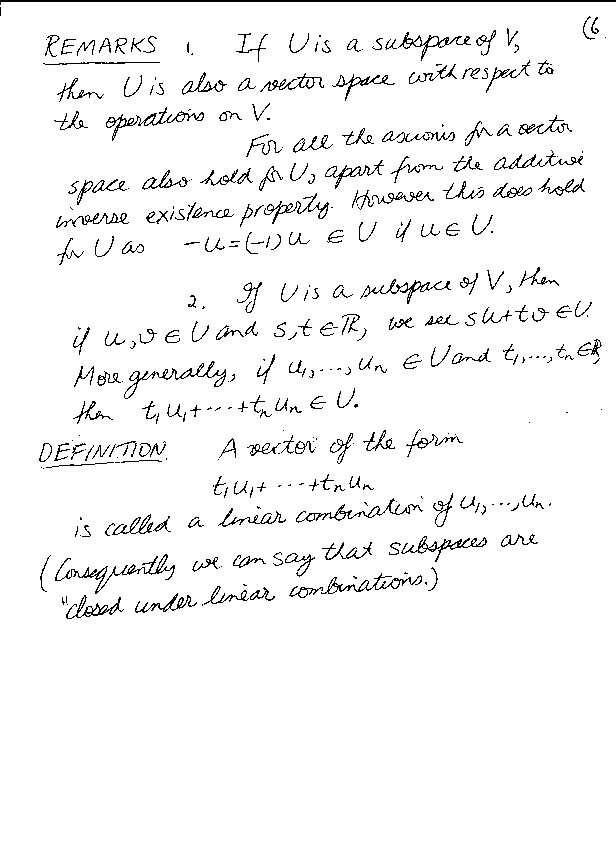 (6.
REMARKS 1. If U is a subspace of V,
then U is also a vector space with respect to
the operations on V.
For all the axioms for a vector
space also hold for U, apart from the additive
inverse existence property. However this does hold
for U as -u = (-1)u ∈ U if u ∈ U.
2. If U is a subspace of V, then
if u, v ∈ U and s, t ∈ ℝ, we see su + tv ∈ U.
More generally, if u₁, ..., uₙ ∈ U and t₁, ..., tₙ ∈ ℝ,
then t₁u₁ + ··· + tₙuₙ ∈ U.
DEFINITION A vector of the form
t₁u₁ + ··· + tₙuₙ
is called a linear combination of u₁, ..., uₙ.
(Consequently we can say that subspaces are
"closed under linear combinations.)